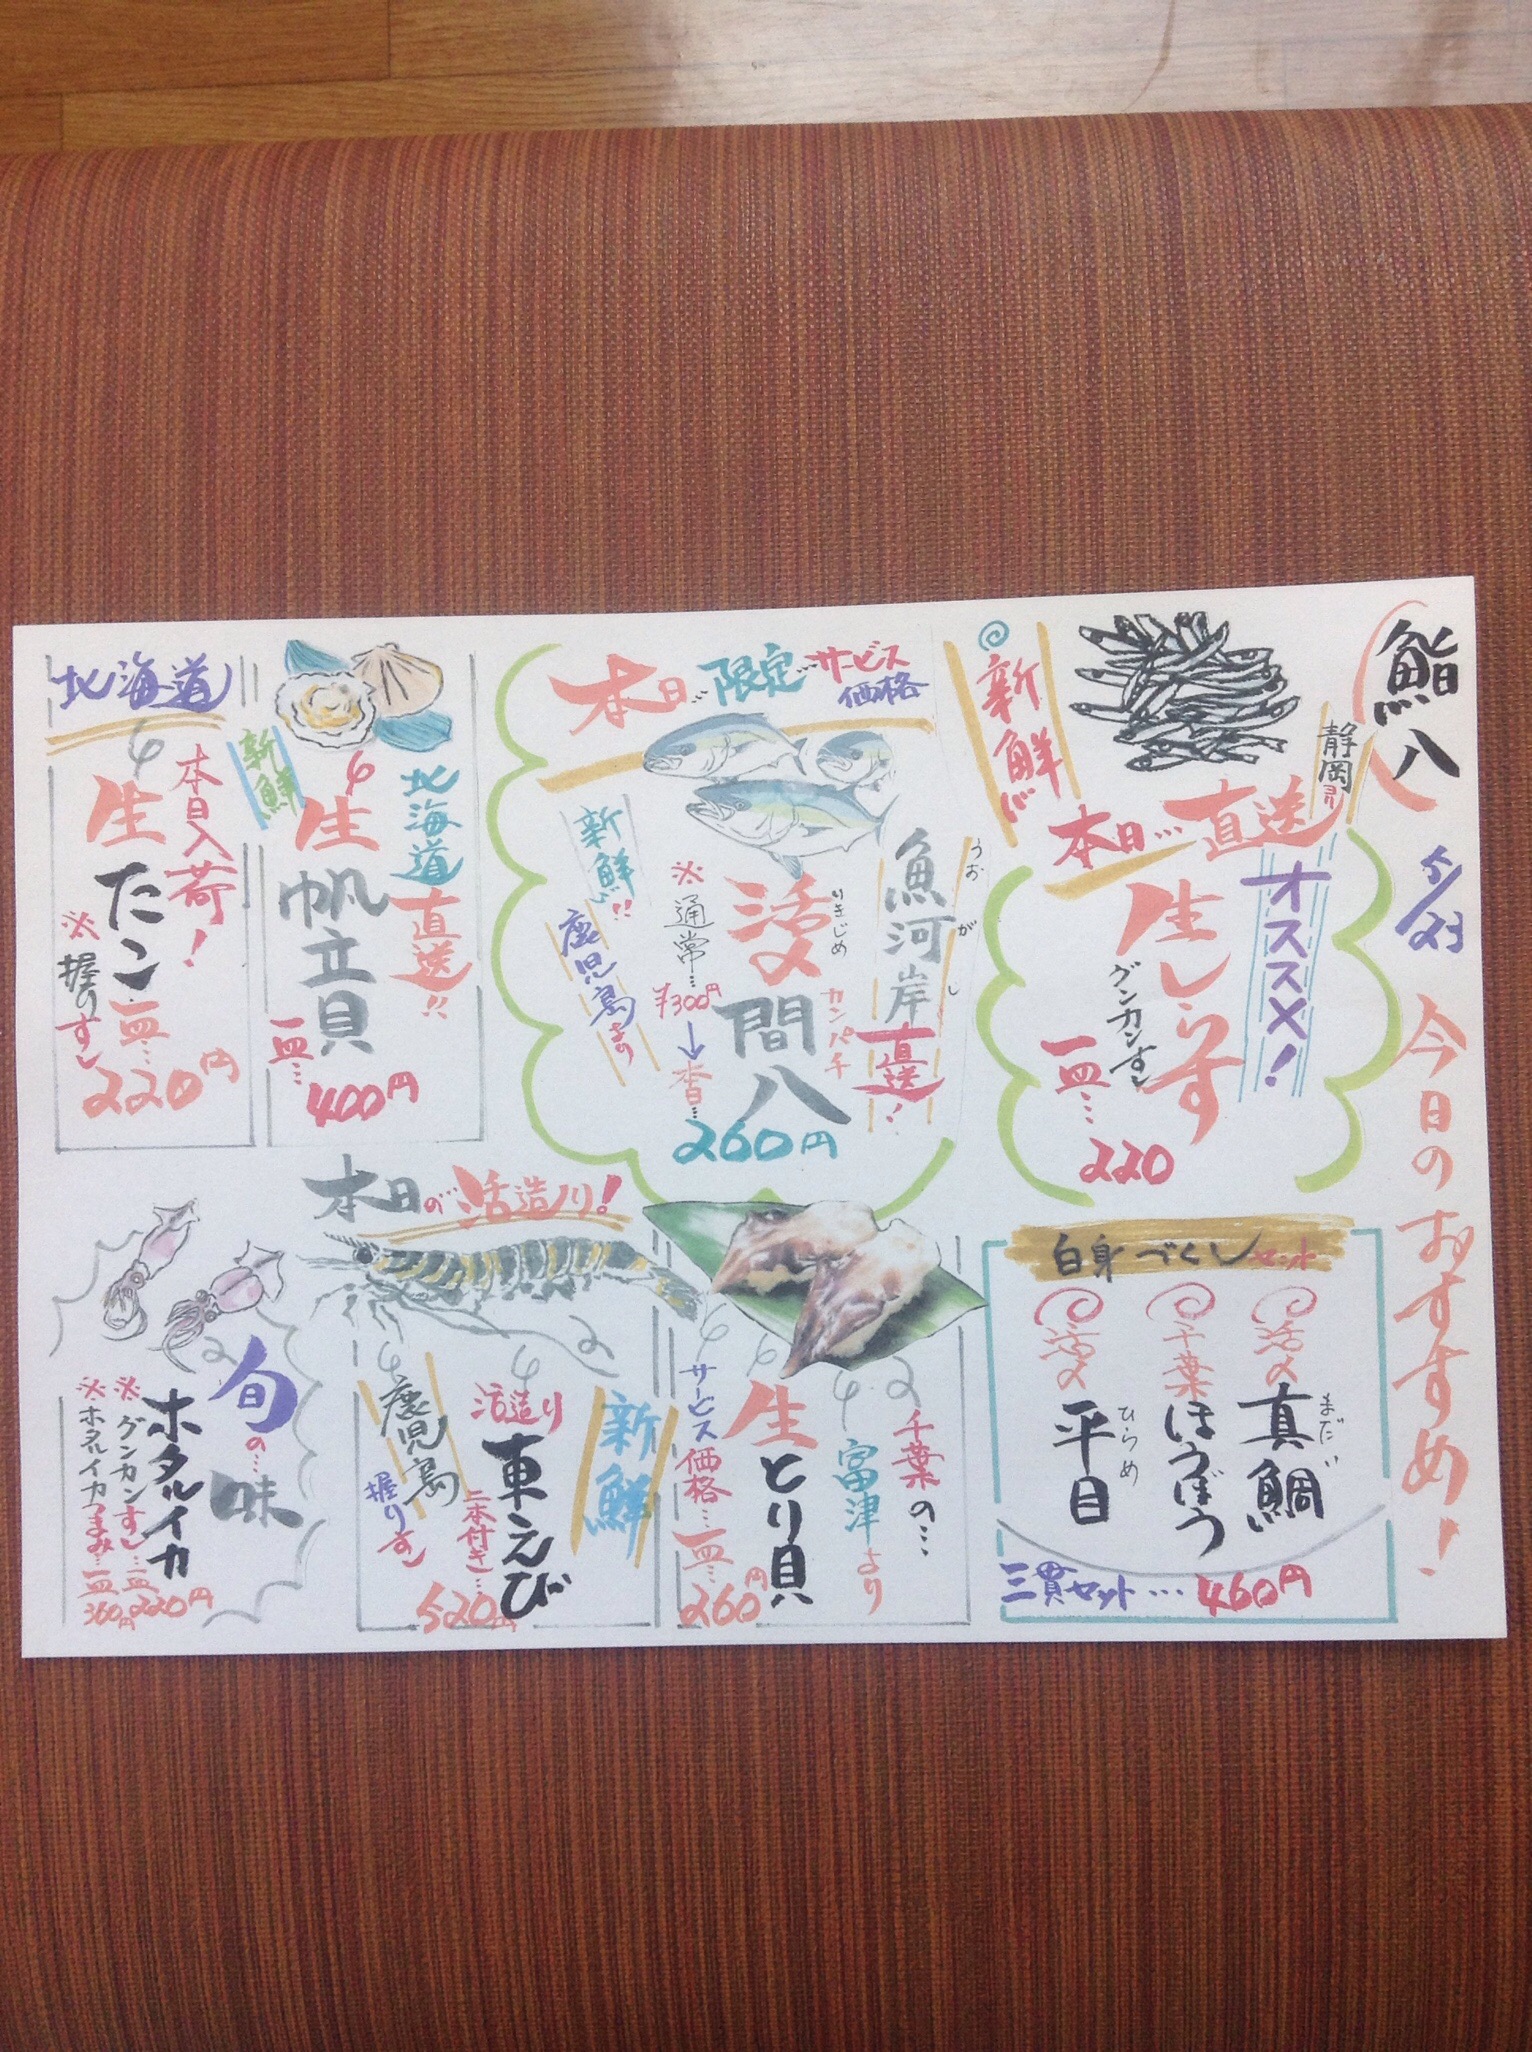 鮨八
5/23
今日のおすすめ!
静岡より
新鮮!!
本日…直送
オススメ!
生しらす
グンカンすし
一皿…
220
本日…限定サービス価格
魚河岸
うおがし
直送!
活〆
いきじめ
間八
カンパチ
※通常…¥300円
→
本日…
260円
新鮮!!
鹿児島より
新鮮
北海道
直送!!
生
帆立貝
一皿…
400円
北海道
本日入荷!
生たこ
※握りすし
一皿…
220円
白身づくしセット
活〆
真鯛
まだい
千葉
ほうぼう
活〆
平目
ひらめ
三貫セット…460円
千葉の…
富津より
生とり貝
サービス価格…一皿…
260円
本日の…活造り!
新鮮
活造り
車えび
二本付き…
520円
鹿児島
握りすし
旬の…味
ホタルイカ
※グンカンすし…一皿220円
※ホタルイカつまみ…一皿360円